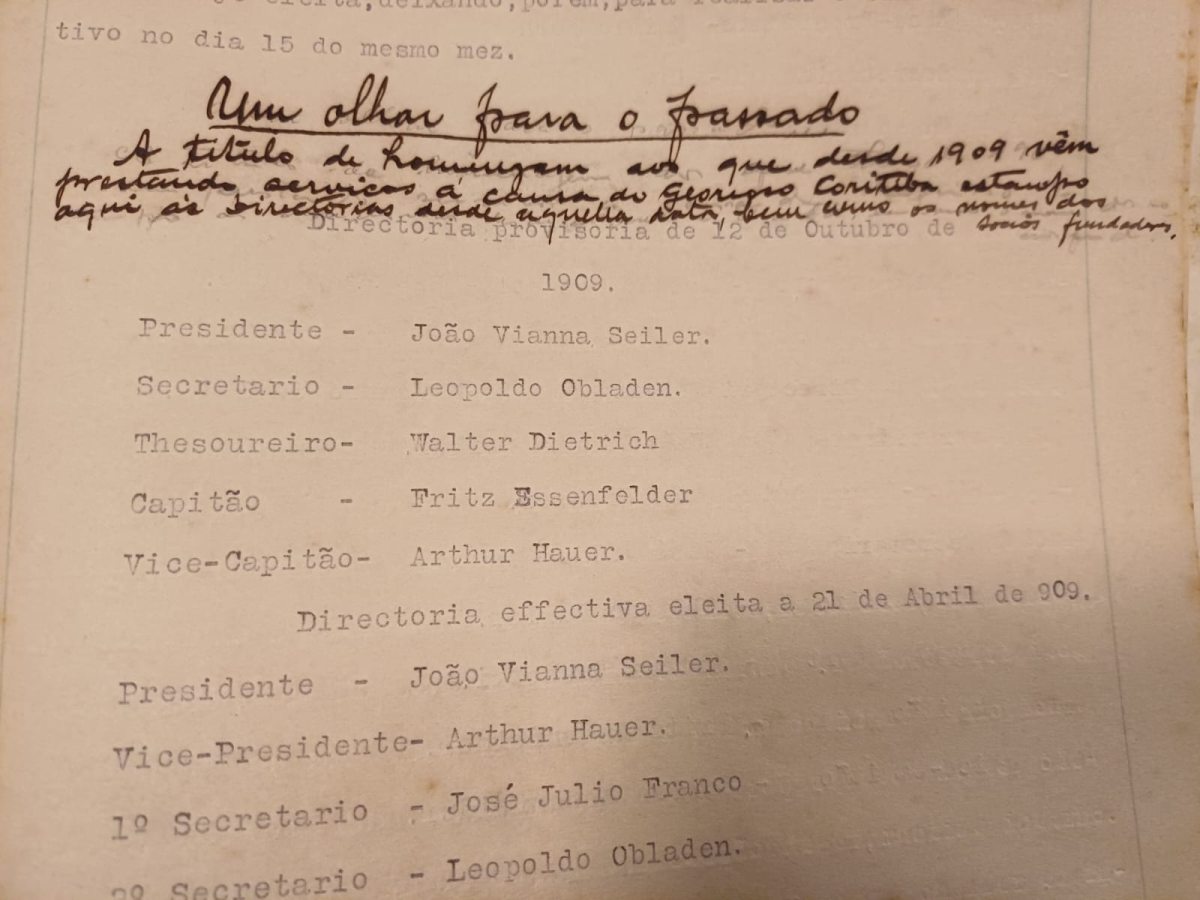 eleita,deixando,porem,para realisar o
tivo no dia 15 do mesmo mez.
Um olhar para o passado
A titulo de homenagem aos que desde 1909 vêm
prestando serviços á causa do Glorioso Coritiba estampo
aqui as Directorias desde aquella data, bem como os nomes dos
socios fundadores.
Directoria provisoria de 12 de Outubro de
1909.
Presidente - João Vianna Seiler.
Secretario - Leopoldo Obladen.
Thesoureiro- Walter Dietrich
Capitão - Fritz Essenfelder
Vice-Capitão- Arthur Hauer.
Directoria effectiva eleita a 21 de Abril de 909.
Presidente - João Vianna Seiler.
Vice-Presidente- Arthur Hauer.
1º Secretario - José Julio Franco
2º Secretario - Leopoldo Obladen.